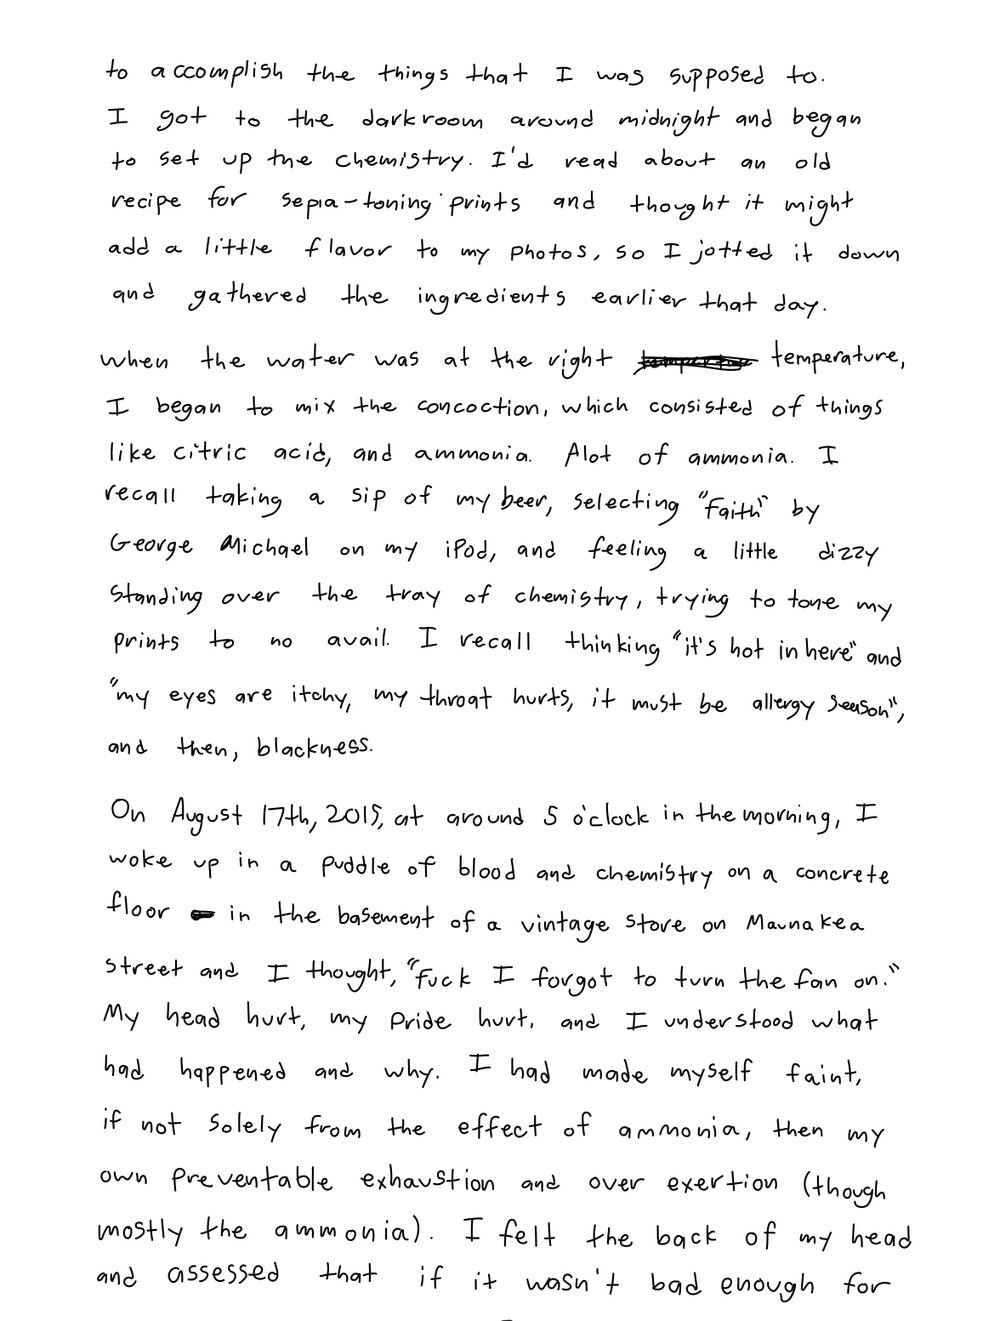 to accomplish the things that I was supposed to.
I got to the darkroom around midnight and began
to set up the chemistry. I'd read about an old
recipe for sepia-toning prints and thought it might
add a little flavor to my photos, so I jotted it down
and gathered the ingredients earlier that day.
when the water was at the right temperature,
I began to mix the concoction, which consisted of things
like citric acid, and ammonia. Alot of ammonia. I
recall taking a sip of my beer, selecting "Faith" by
George Michael on my iPod, and feeling a little dizzy
standing over the tray of chemistry, trying to tone my
prints to no avail. I recall thinking "it's hot in here" and
"my eyes are itchy, my throat hurts, it must be allergy season",
and then, blackness.
On August 17th, 2015, at around 5 o'clock in the morning, I
woke up in a puddle of blood and chemistry on a concrete
floor in the basement of a vintage store on Maunakea
street and I thought, "Fuck I forgot to turn the fan on."
My head hurt, my pride hurt, and I understood what
had happened and why. I had made myself faint,
if not solely from the effect of ammonia, then my
own preventable exhaustion and over exertion (though
mostly the ammonia). I felt the back of my head
and assessed that if it wasn't bad enough for